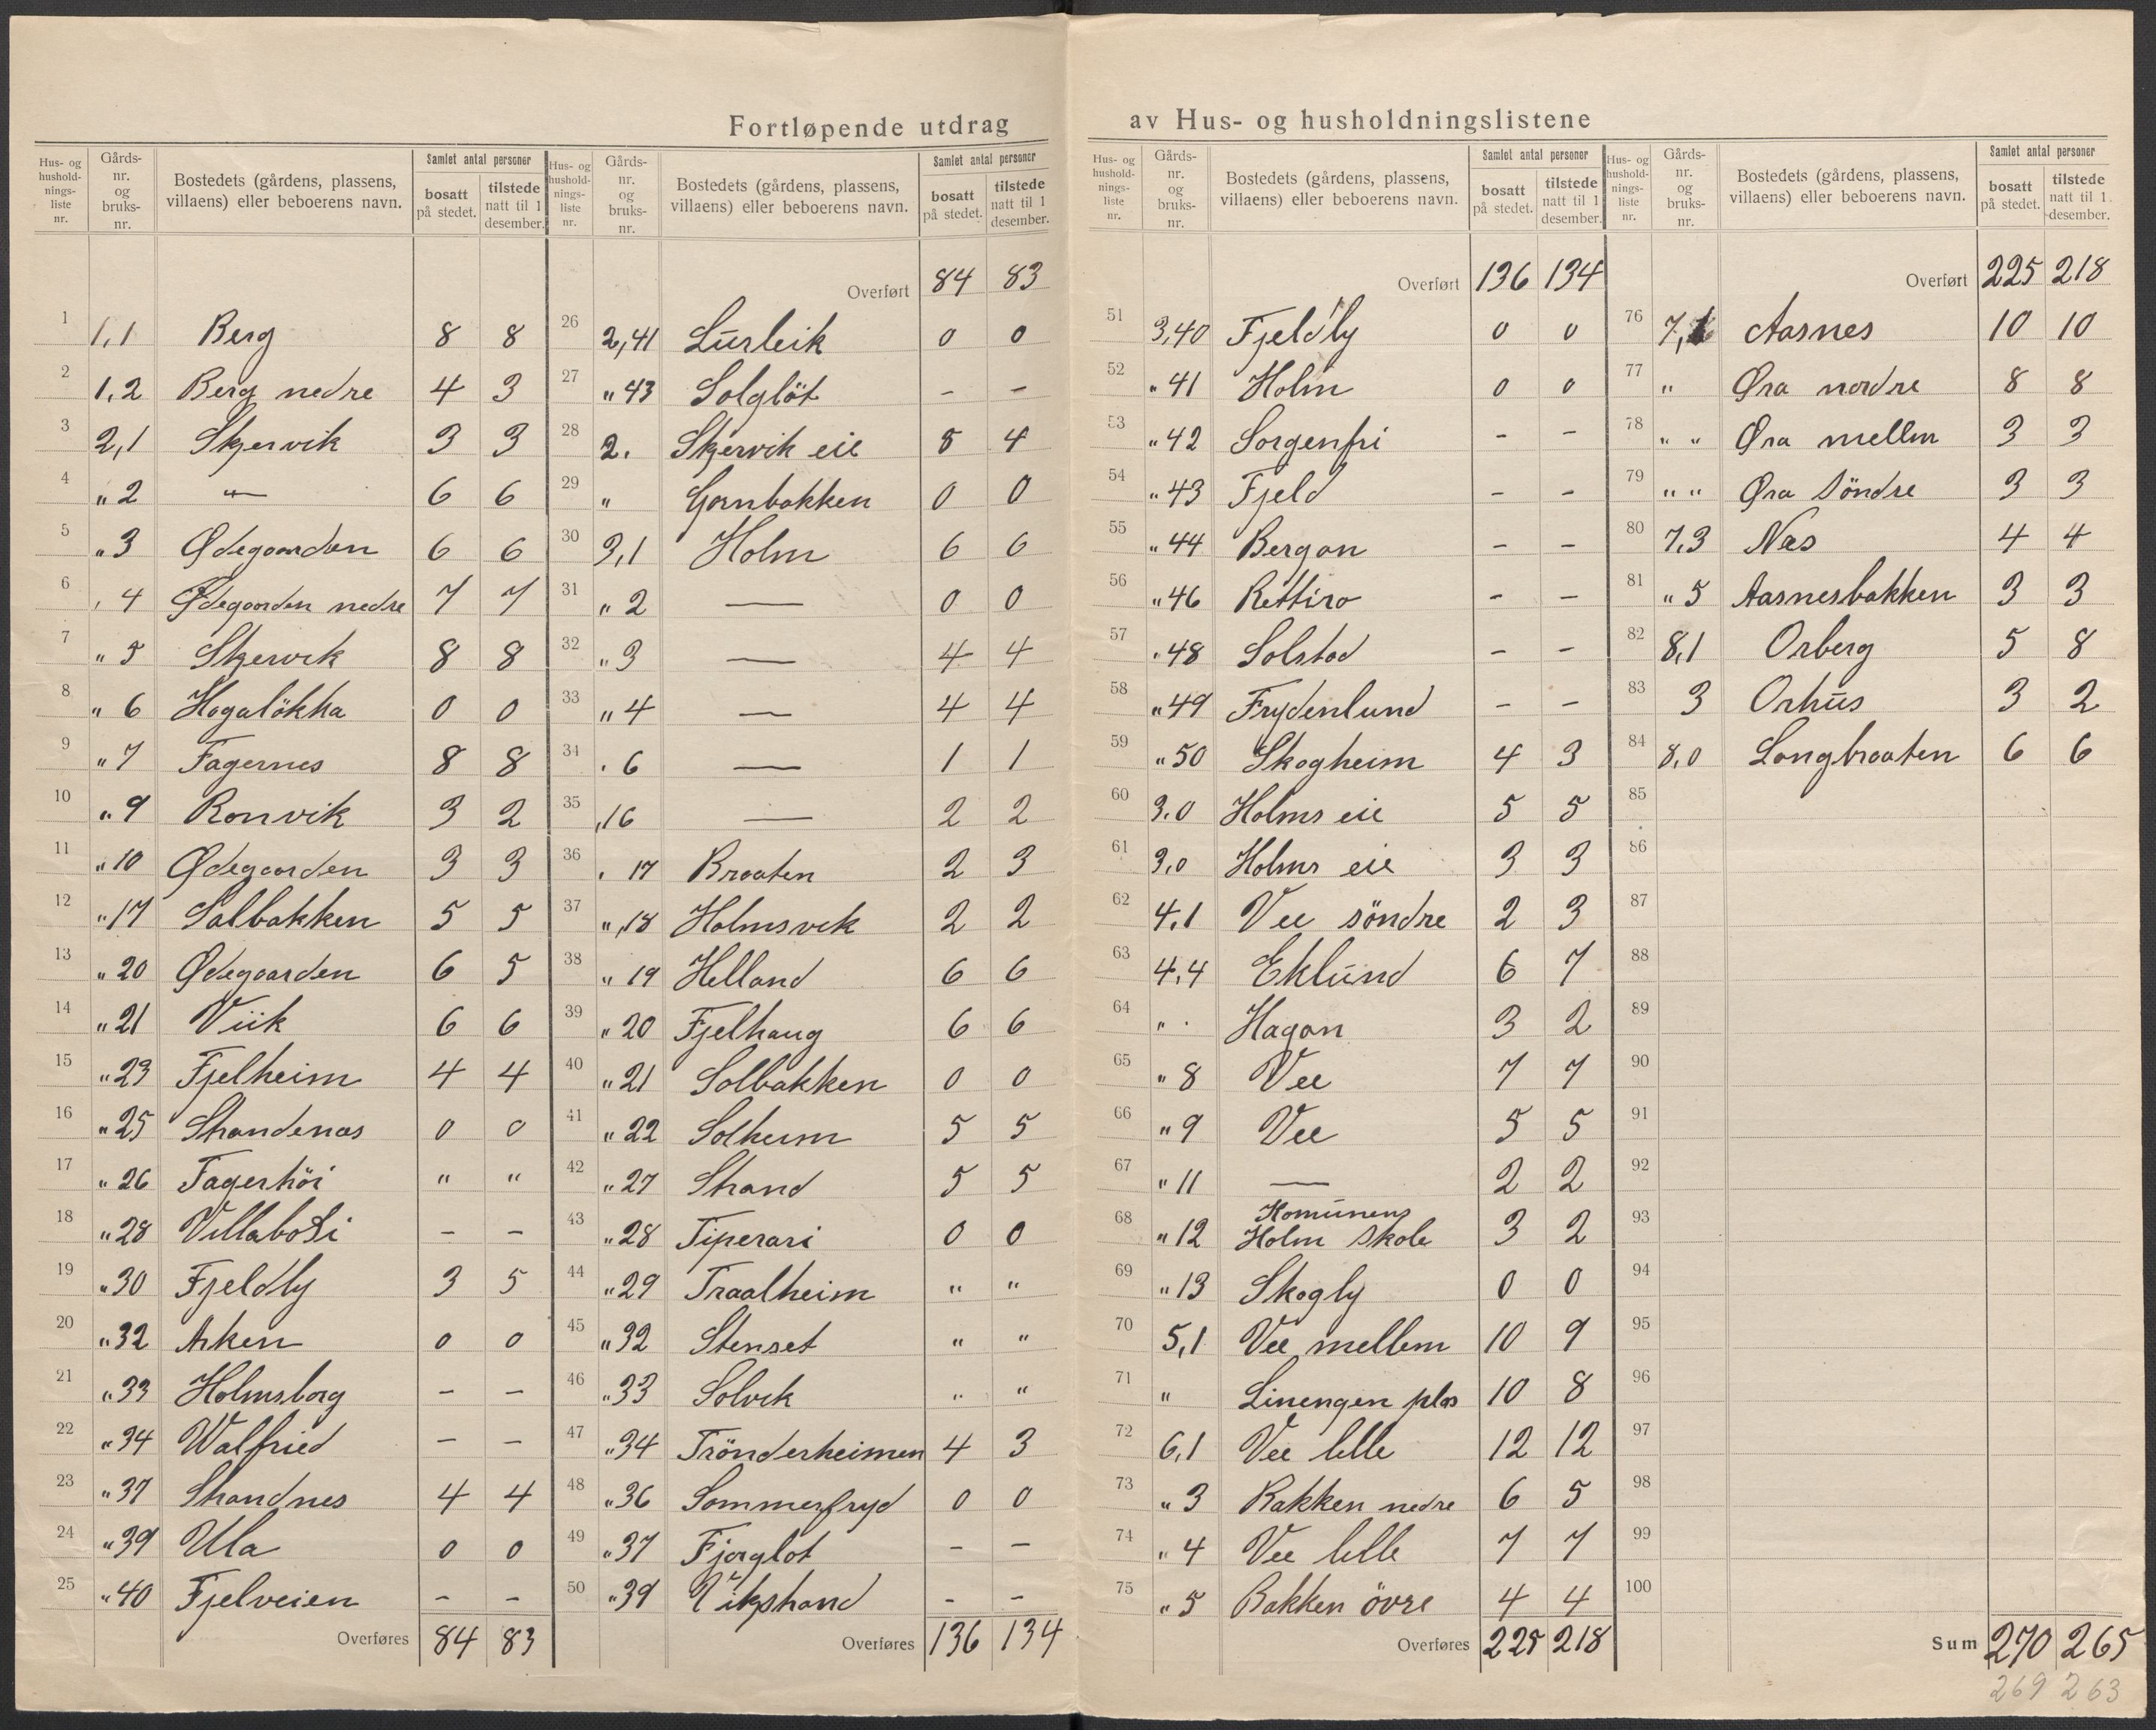 Fortløpende utdrag av Hus- og husholdningslistene
Hus- og husholdnings-liste nr. Gårds-nr. og bruks-nr. Bostedets (gårdens, plassens, villaens) eller beboerens navn. Samlet antal personer bosatt på stedet. tilstede natt til 1 desember.
1 1,1 Berg 8 8
2 1,2 Berg nedre 4 3
3 2,1 Skjervik 3 3
4 " 2 — " — 6 6
5 " 3 Ødegaarden 6 6
6 , 4 Ødegaarden nedre 7 7
7 " 5 Skjervik 8 8
8 " 6 Hagaløkka 0 0
9 " 7 Fagernes 8 8
10 " 9 Ronvik 3 2
11 " 10 Ødegaarden 3 3
12 " 17 Solbakken 5 5
13 " 20 Ødegaarden 6 5
14 " 21 Viik 6 6
15 " 23 Fjelheim 4 4
16 " 25 Strandenas 0 0
17 " 26 Fagerhöi " "
18 " 28 Villabodi - -
19 " 30 Fjeldly 3 5
20 " 32 Arken 0 0
21 " 33 Holmsborg - -
22 " 34 Walfried - -
23 " 37 Strandnes 4 4
24 " 39 Ula 0 0
25 " 40 Fjelveien - -
Overføres 84 83
Hus- og husholdnings-liste nr. Gårds-nr. og bruks-nr. Bostedets (gårdens, plassens, villaens) eller beboerens navn. Samlet antal personer bosatt på stedet. tilstede natt til 1 desember.
Overført 84 83
26 2,41 Lurleik 0 0
27 " 43 Solglöt - -
28 2. Skjervik eie 5 4
29 " Gornbakken 0 0
30 3,1 Holm 6 6
31 " 2 — 0 0
32 " 3 — 4 4
33 " 4 — 4 4
34 . 6 — 1 1
35 , 16 — 2 2
36 . 17 Braaten 2 3
37 " 18 Holmsvik 2 2
38 " 19 Helland 6 6
39 " 20 Fjelhaug 6 6
40 " 21 Solbakken 0 0
41 " 22 Solheim 5 5
42 " 27 Strand 5 5
43 " 28 Tiperari 0 0
44 " 29 Traalheim " "
45 " 32 Stenset " "
46 " 33 Solvik " "
47 " 34 Trönderheimen 4 3
48 " 36 Sommerfryd 0 0
49 " 37 Fjorglot - -
50 " 39 Vikstrand - -
Overføres 136 134
Hus- og husholdnings-liste nr. Gårds-nr. og bruks-nr. Bostedets (gårdens, plassens, villaens) eller beboerens navn. Samlet antal personer bosatt på stedet. tilstede natt til 1 desember.
Overført 136 134
51 3,40 Fjeldly 0 0
52 " 41 Holm 0 0
53 " 42 Sorgenfri - -
54 " 43 Fjeld - -
55 " 44 Bergan - -
56 " 46 Rettiro - -
57 " 48 Solstad - -
58 " 49 Frydenlund - -
59 " 50 Skogheim 4 3
60 3.0 Holms eie 5 5
61 3,0 Holms eie 3 3
62 4,1 Vee söndre 2 3
63 4,4 Eklund 6 7
64 " . Hagan 3 2
65 " 8 Vee 7 7
66 " 9 Vee 5 5
67 " 11 — 2 2
68 " 12 Komunens Holm skole 3 2
69 " 13 Skogly 0 0
70 5,1 Vee mellem 10 9
71 " Linengen plas 10 8
72 6,1 Vee lille 12 12
73 " 3 Bakken nedre 6 5
74 " 4 Vee lille 7 7
75 " 5 Bakken övre 4 4
Overføres 225 218
Hus- og husholdnings-liste nr. Gårds-nr. og bruks-nr. Bostedets (gårdens, plassens, villaens) eller beboerens navn. Samlet antal personer bosatt på stedet. tilstede natt til 1. desember.
Overført 225 218
76 7,1 Aasnes 10 10
77 " Øra nordre 8 8
78 " " Øra mellm 3 3
79 " " Øra Söndre 3 3
80 7,3 Næs 4 4
81 " 5 Aasnesbakken 3 3
82 8,1 Orberg 5 8
83 3 Orhus 3 2
84 8,0 Langbraaten 6 6
85
86
87
88
89
90
91
92
93
94
95
96
97
98
99
100
Sum 270 265
269 263